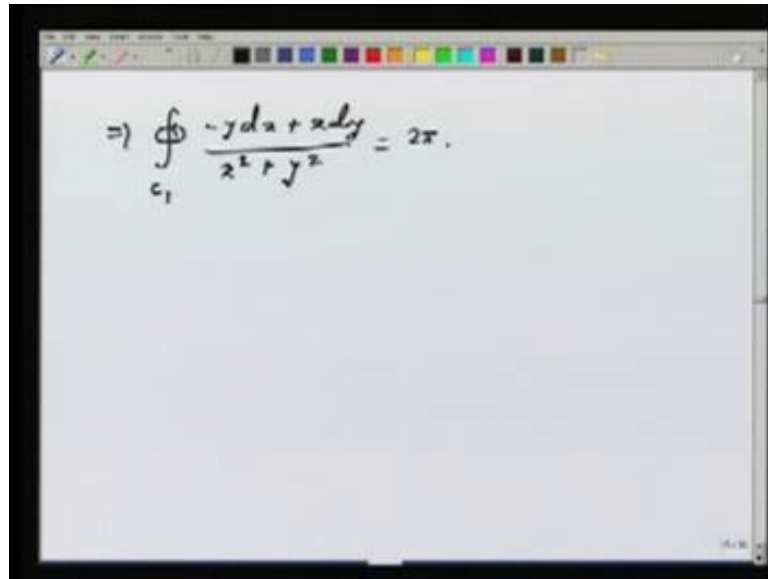 ⇒ ∮_{C_1} \frac{-y dx + x dy}{x^2 + y^2} = 2π.